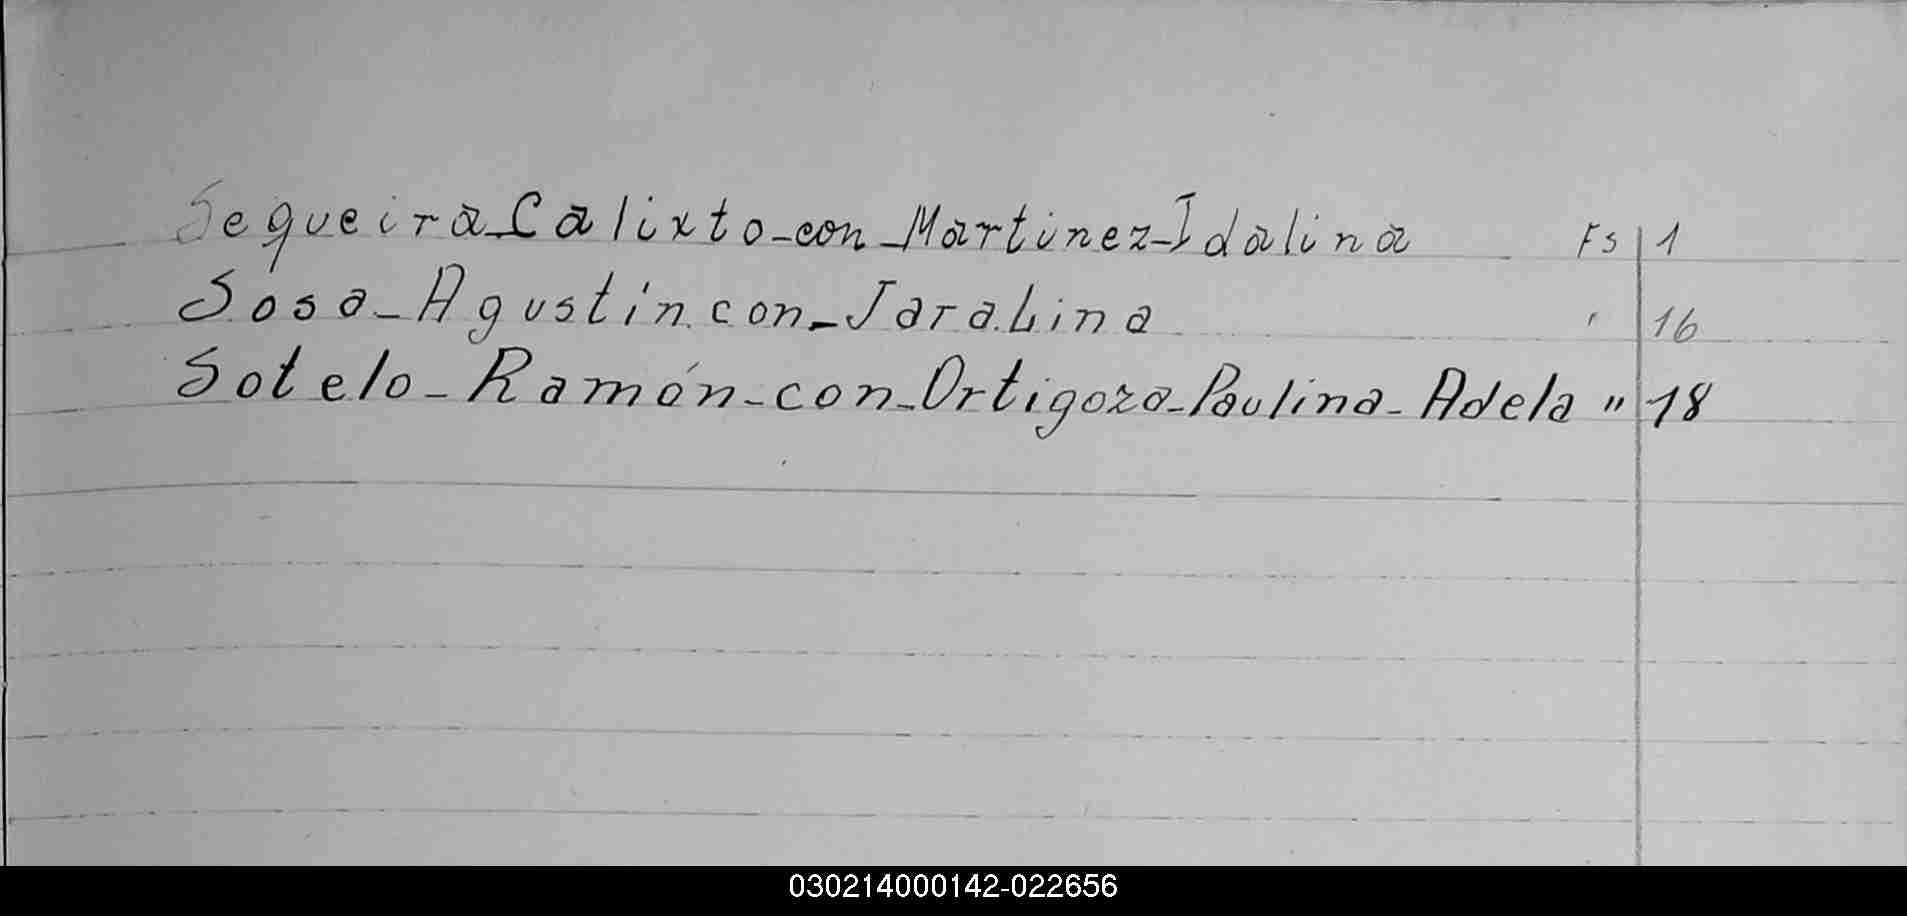 Sequeira-Calixto-con-Martinez-Idalina Fs 1
Sosa-Agustín.con-Jara.Lina " 16
Sotelo-Ramón-con-Ortigoza-Paulina-Adela " 18
030214000142-022656